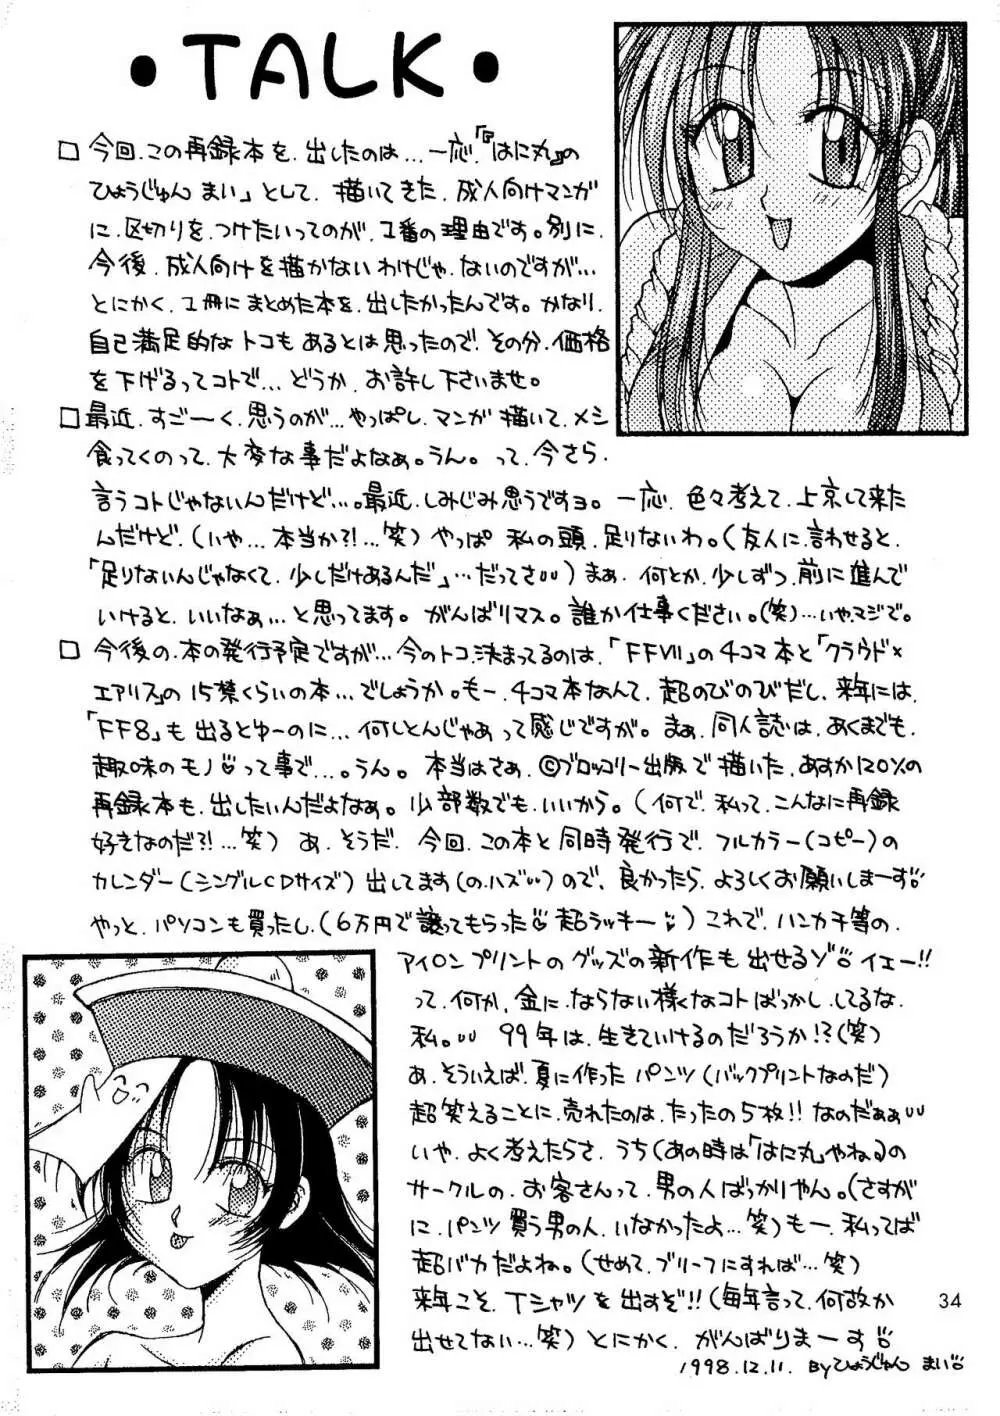 ・TALK・
□今回、この再録本を、出したのは…一応、『はに丸』の
ひょうじゅん まい」として、描いてきた、成人向けマンガ
に、区切りを、つけたいってのが、1番の理由です。別に、
今後、成人向けを描かないわけじゃ、ないのですが…
とにかく、1冊にまとめた本を、出したかったんです。かなり、
自己満足的なトコもあるとは思ったので、その分、価格
を下げるってコトで…どうか、お許し下さいませ。
□最近、すご〜く、思うのが…やっぱし、マンガ描いて、メシ
食ってくのって、大変な事だよなぁ。うん。って、今さら、
言うコトじゃないんだけど…。最近、しみじみ思うですョ。一応、色々考えて、上京して来た
んだけど、(いや…本当か?!…笑)やっぱ 私の頭、足りないわ。(友人に、言わせると、
「足りないんじゃなくて、少しだけあるんだ」…だってさ)まぁ、何とか、少しずつ、前に進んで
いけると、いいなぁ…と思ってます。がんばリマス。誰か仕事ください。(笑)…いや、マジで。
□今後の、本の発行予定ですが…今のトコ、決まってるのは、「FFVII」の4コマ本と「クラウド×
エアリス」の15禁くらいの本…でしょうか。もー、4コマ本なんて、超のびのびだし、来年には、
「FF8」も出るとゆーのに…何しとんじゃぁって感じですが。まぁ、同人誌は、あくまでも、
趣味のモノって事で…。うん。本当はさぁ、©ブロッコリー出版で描いた、あすか120%の
再録本も、出したいんだよなぁ。少部数でも、いいから。(何で、私って、こんなに再録
好きなのだ?!…笑)あ、そうだ、今回、この本と同時発行で、フルカラー(コピー)の
カレンダー(シングルCDサイズ)出してます(の、ハズ)ので、良かったら、よろしくお願いしまーす
やっと、パソコンも買ったし、(6万円で譲ってもらった超ラッキー)これで、ハンカチ等の、
アイロンプリントのグッズの新作も出せるゾ イエー!!
って、何か、金に、ならない様なコトばっかし、してるな、
私。99年は、生きていけるのだろうか!?(笑)
あ、そういえば、夏に作ったパンツ(バックプリントなのだ)
超笑えることに、売れたのは、たったの5枚!!なのだぁぁ
いや、よく考えたらさ、うち(あの時は「はに丸やねる)の
サークルの、お客さんって、男の人ばっかりやん。(さすが
に、パンツ買う男の人、いなかったよ…笑)もー、私ってば
超バカだよね。(せめて、ブリーフにすれば…笑)
来年こそ、Tシャツを出すぞ!!(毎年言って、何故か
出せてない…笑)とにかく、がんばりまーす
1998.12.11. Byひょうじゅん まい
34